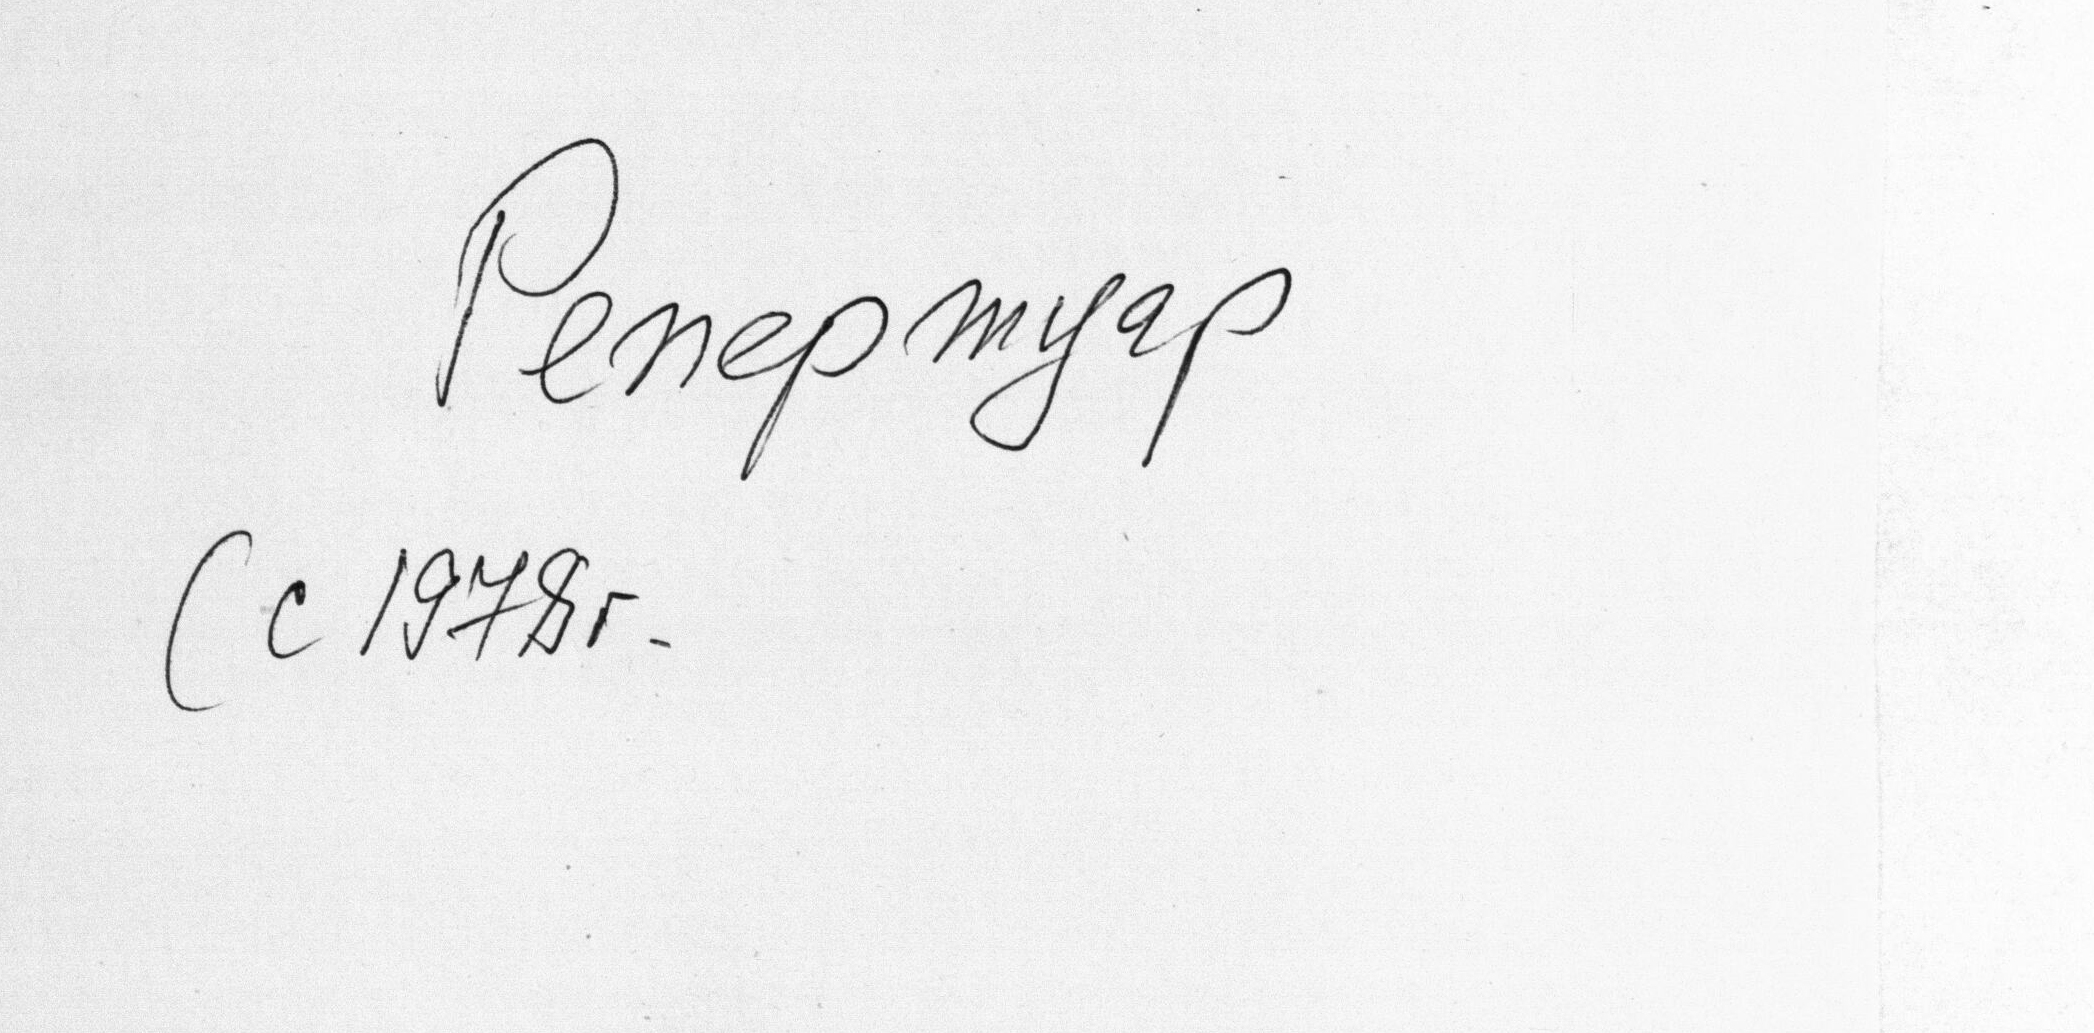 Репертуар
(с 1978г.